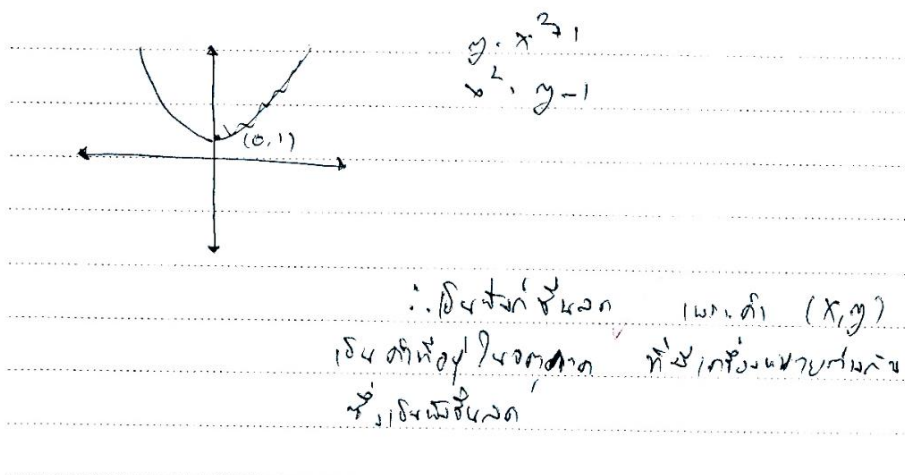 y = x²+1
x² = y-1
(0,1)
∴ เป็นฟังก์ชันลด เพราะค่า (x,y)
เป็นค่าที่อยู่ในจตุภาค ที่มีเครื่องหมายต่างกัน
ซึ่งเป็นฟังชันลด